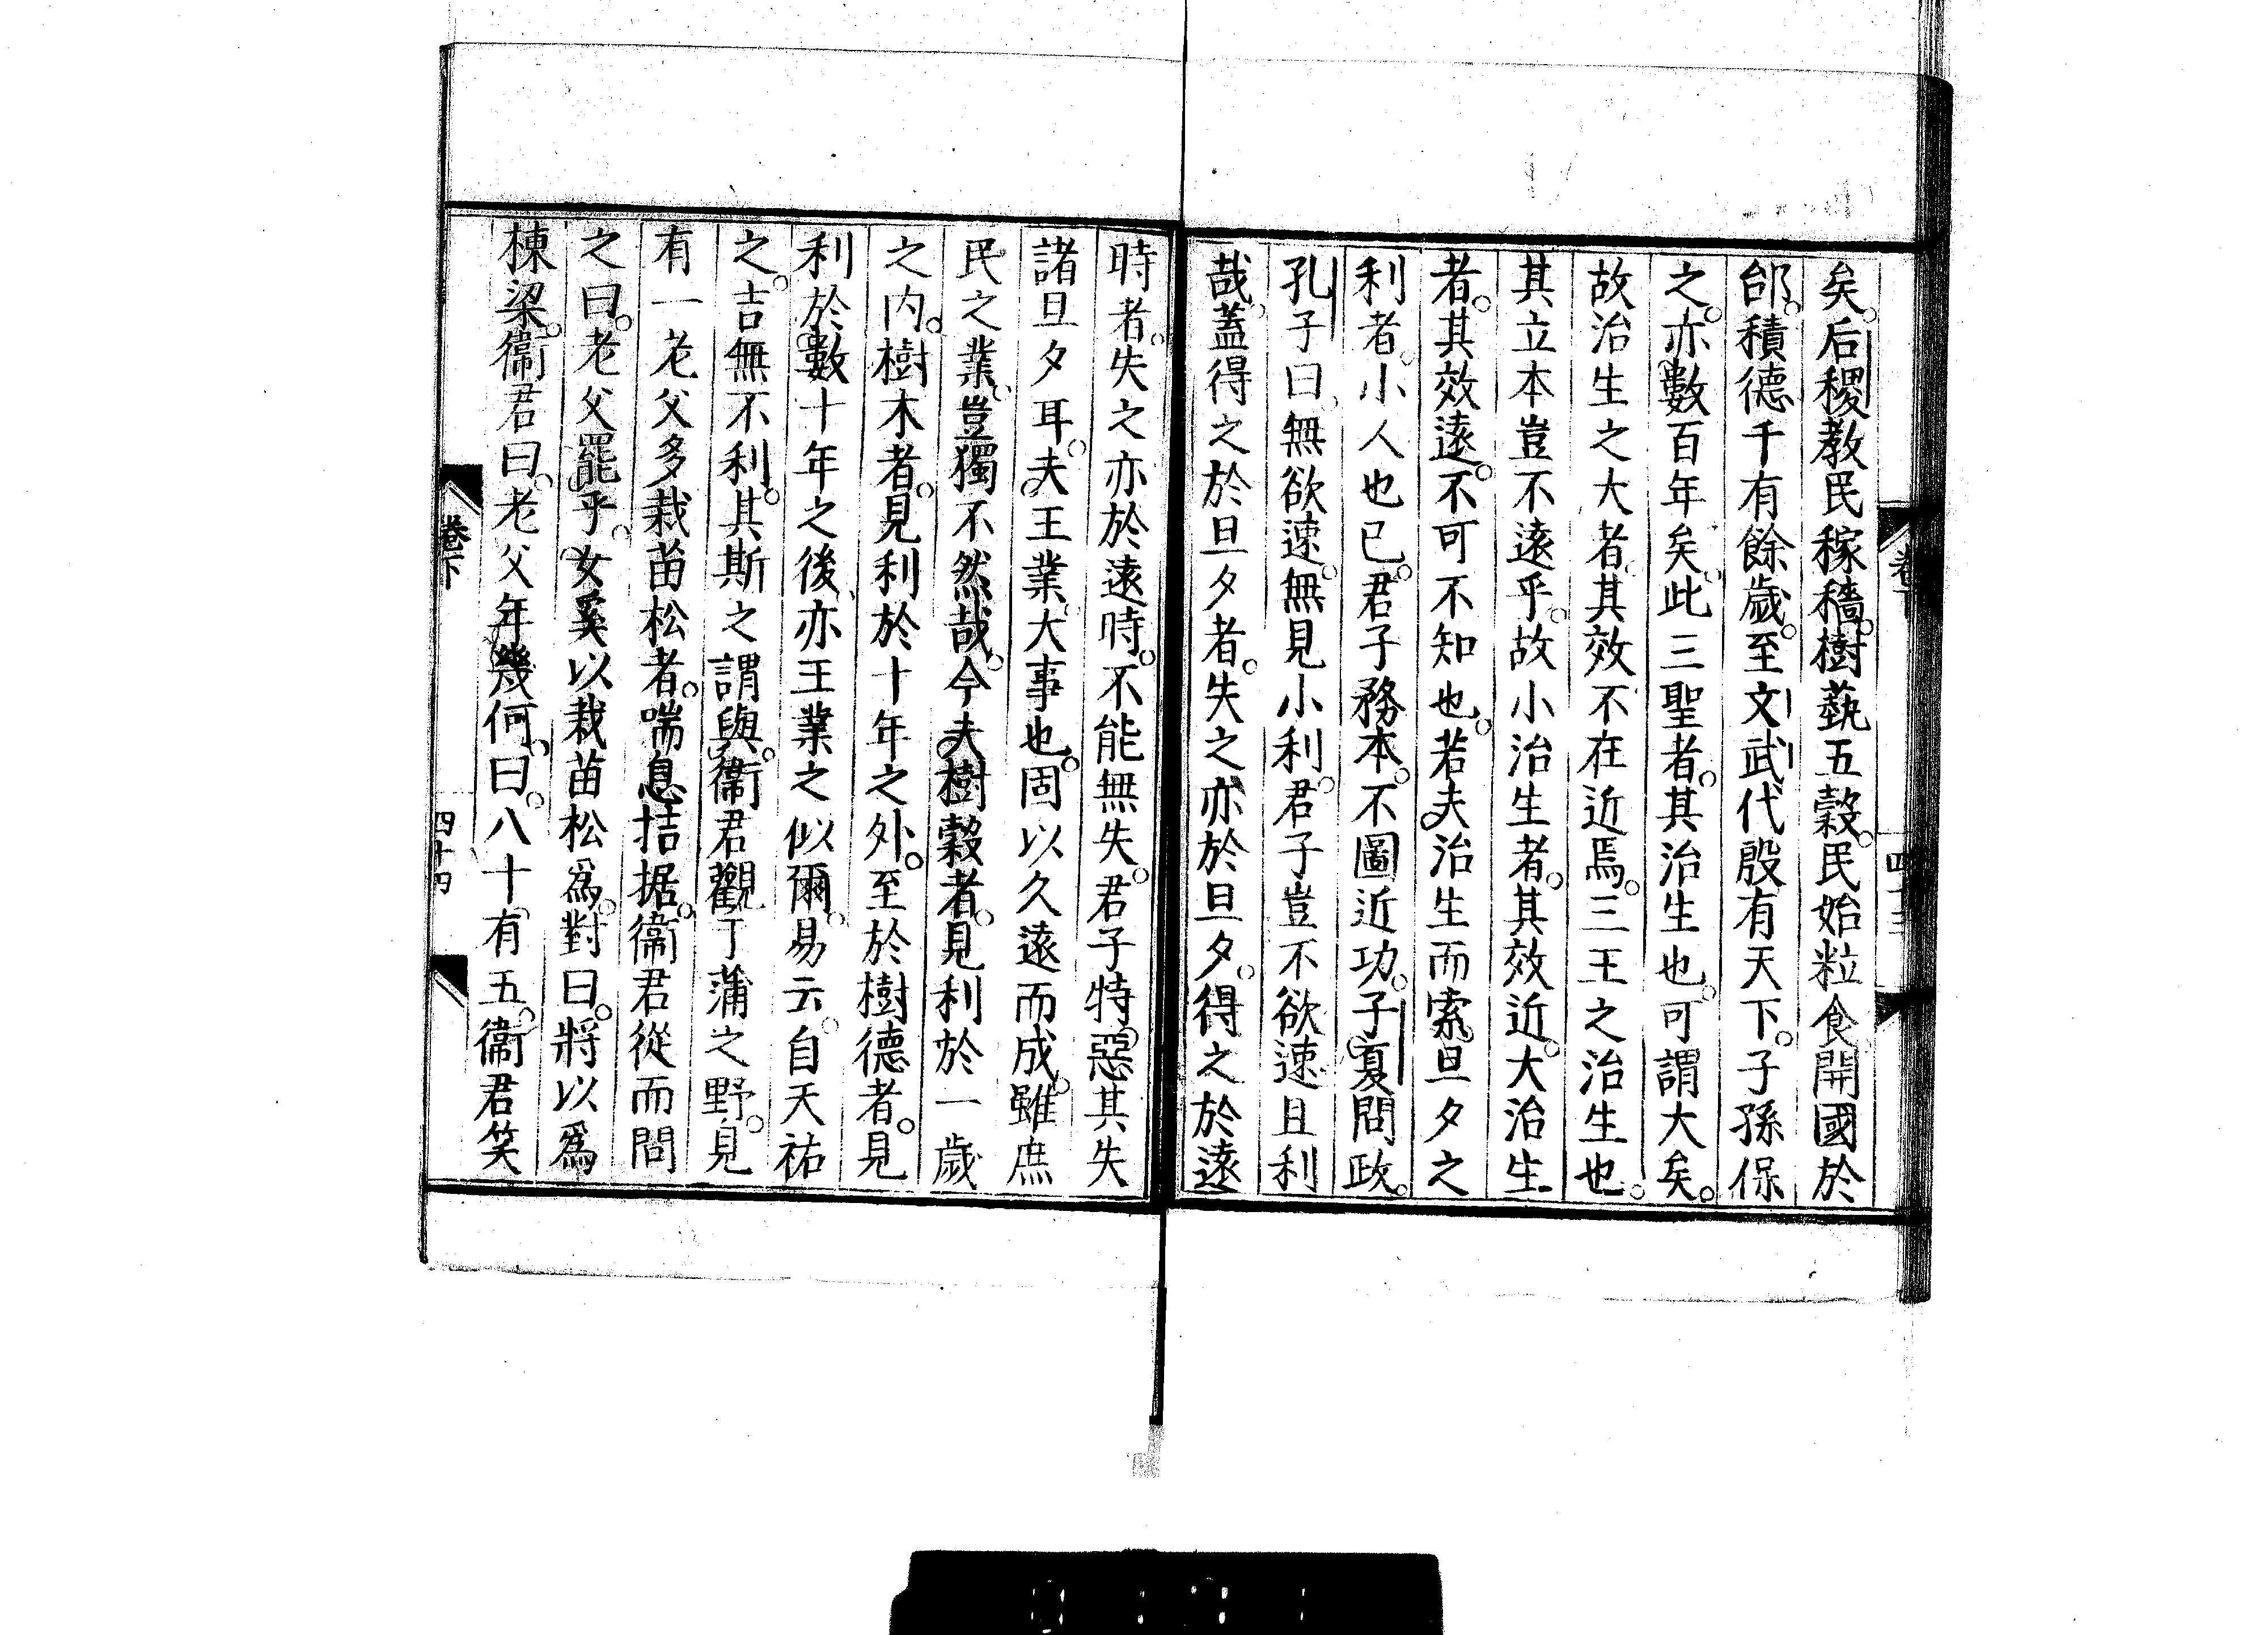 矣。后稷教民稼穡。樹蓺五穀。民始粒食開國於
邰。積德千有餘歲。至文武代殷有天下。子孫保
之。亦數百年矣。此三聖者。其治生也。可謂大矣。
故治生之大者。其效不在近焉。三王之治生也。
其立本豈不遠乎。故小治生者。其效近。大治生
者。其效遠。不可不知也。若夫治生而索旦夕之
利者。小人也已。君子務本。不圖近功。子夏問政。
孔子曰。無欲速。無見小利。君子豈不欲速且利
哉。蓋得之於旦夕者。失之亦於旦夕。得之於遠
時者。失之亦於遠時。不能無失。君子特惡其失
諸旦夕耳。夫王業大事也。固以久遠而成。雖庶
民之業。豈獨不然哉。今夫樹穀者。見利於一歲
之内。樹木者。見利於十年之外。至於樹德者。見
利於數十年之後。亦王業之似爾。易云。自天祐
之。吉無不利。其斯之謂與。衞君觀于蒲之野。見
有一老父多栽苗松者。喘息拮据。衞君從而問
之曰。老父罷乎。女奚以栽苗松爲。對曰。將以爲
棟梁。衞君曰。老父年幾何。曰。八十有五。衞君笑
卷下
四十四